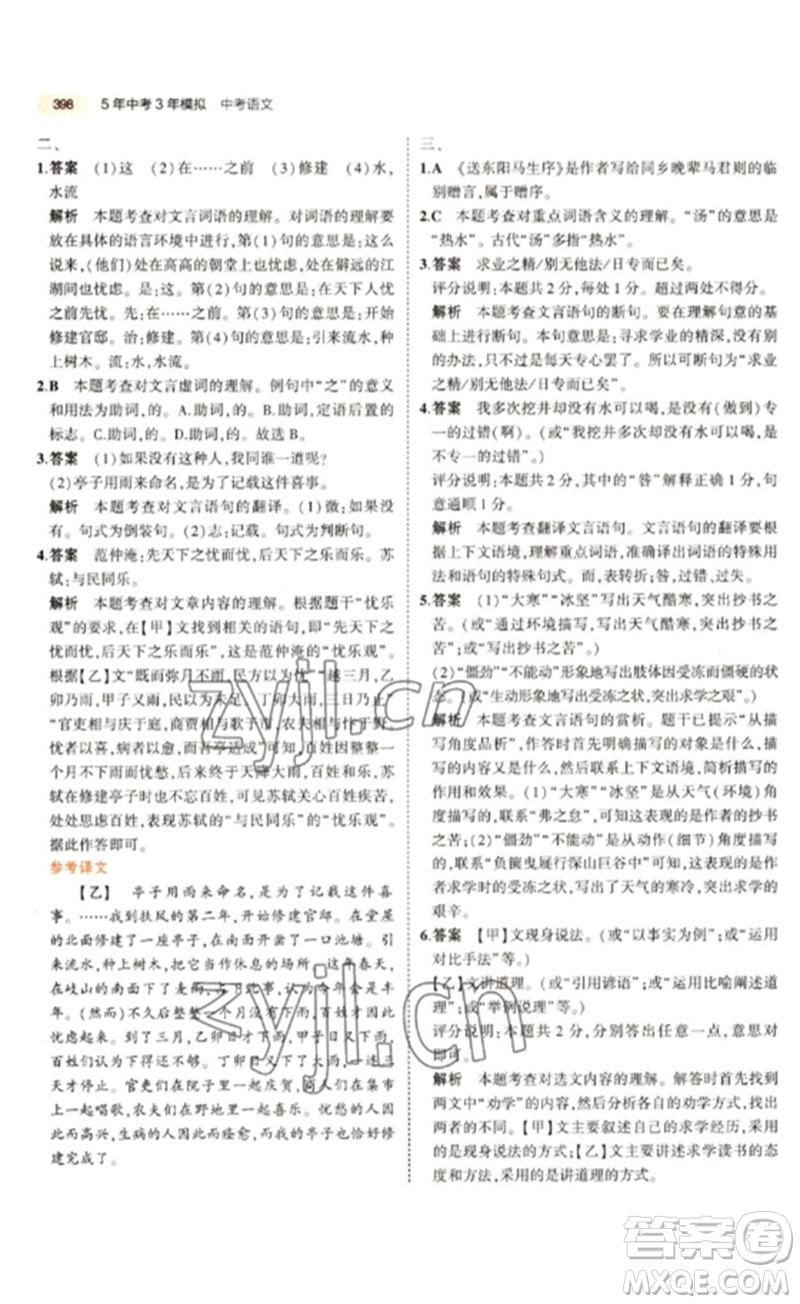 398 5年中考3年模拟 中考语文
二、
1.答案 (1)这 (2)在……之前 (3)修建 (4)水,
水流
解析 本题考查对文言词语的理解。对词语的理解要
放在具体的语言环境中进行,第(1)句的意思是:这么说
来,(他们)在高高的朝堂上也忧虑,处在僻远的江
湖间也忧虑。是:这。第(2)句的意思是:在天下人忧
之前先忧。先:在……之前。第(3)句的意思是:开始
修建官邸。治:修建。第(4)句的意思是:引来流水,种
上树木。流:水,水流。
2.B 本题考查对文言虚词的理解。例句中“之”的意义
和用法为助词,的。A.助词,的。B.助词,定语后置的
标志。C.助词,的。D.助词,的。故选B。
3.答案 (1)如果没有这种人,我同谁一道呢?
(2)亭子用雨来命名,是为了记载这件喜事。
解析 本题考查对文言语句的翻译。(1)微:如果没
有。句式为倒装句。(2)志:记载。句式为判断句。
4.答案 范仲淹:先天下之忧而忧,后天下之乐而乐。苏
轼:与民同乐。
解析 本题考查对文章内容的理解。根据题干“忧乐
观”的要求,在【甲】文找到相关的语句,即“先天下之
忧而忧,后天下之乐而乐”,这是范仲淹的忧乐观。
根据【乙】文“既而弥月不雨”“越三月,乙
卯乃雨,甲子又雨,民以为未足。丁卯大雨,三日乃止”
“官吏相与庆于庭,商贾相与歌于市,农夫相与忭于野,
忧者以喜,病者以愈,而吾亭适成”可知,百姓因整整一
个月不下雨而忧愁,后因为天降大雨,百姓和乐。苏
轼在修建亭子时仍不忘百姓,可见他忧虑百姓疾苦,
处处以百姓为先,体现苏轼的“与民同乐”的“忧乐观”。
据此作答即可。
参考译文
【乙】 亭子用雨来命名,是为了记载这件喜
事。……我到扶风的第二年,开始修建官邸。在堂屋
的北面修建了一座亭子,在南面开凿了一口池塘。引
来流水,种上树木,把它当作休息的场所。这年春天,
在岐山的南面下了麦雨,占卜后认为今年会是丰
年。(然而)不久后整整一个月没有下雨,百姓才因此
忧虑起来。到了三月,乙卯日才下雨,甲子日又下雨,
百姓们认为下得还不够。丁卯日又下大雨,下了三
天才停止。官吏们在院子里一起庆贺,商人们在集市
上一起唱歌,农夫们在野地里一起欢笑。忧愁的人因
此而高兴,生病的人因此而痊愈,而我的亭子也恰好修
建完成了。
三、
1.A 《送东阳马生序》是作者写给同乡晚辈马君则的临
别赠言,属于赠序。
2.C 本题考查对重点词语含义的理解。“汤”的意思是
“热水”。古代“汤”多指“热水”。
3.答案 求业之精/别无他法/日专而已矣。
评分说明:本题共2分,每处1分。超过两处不得分。
解析 本题考查文言语句的断句。要在理解句意的基
础上进行断句。本句意思是:寻求学业的精深,没有别
的办法,只不过是每天专心罢了。因此断句为“求业
之精/别无他法/日专而已矣”。
4.答案 我多次挖井却没有水可以喝,是没有(做到)专
一的过错(啊)。(或“我挖井却没有水可以喝,是不专
一的过错”。)
评分说明:本题共2分,其中的“咎”解释正确1分,句
意通顺1分。
解析 本题考查翻译文言语句。翻译文言语句要根
据上下文语境,理解重点词语,准确译出词语的特殊用
法和语句的特殊句式。而:表转折。咎:过错、过失。
5.答案 (1)“大寒”“冰坚”写出天气酷寒,突出抄书之
苦。(或“通过环境描写,写出天气的寒冷,突出抄书之
苦”“写出抄书之苦”。)
(2)“僵劲”“不能动”形象地写出肢体因受冻而僵硬的状
态。(或“生动形象地写出受冻之状,突出求学之艰”。)
解析 本题考查文言语句的赏析。题干已提示“从描
写角度品析”,作答时首先要明确描写的对象是什么,
描写的角度是什么,然后联系上下文语境,简析描写的
作用和效果。(1)“大寒”“冰坚”是从天气(环境)角
度描写的,联系“弗之怠”,可知,突出的是作者的抄书
之苦;(2)“僵劲”“不能动”是从动作(细节)角度描写
的,联系“负箧曳屣行深山巨谷中”可知,描写的是作
者求学时的受冻之状,写出了天气的寒冷,突出求学的
艰辛。
6.答案 【甲】文现身说法。(或“以事实为例”;或“运用
对比手法”等。)
【乙】文讲道理。(或“引用谚语”;或“运用比喻阐述道
理”;或“举例说理”等。)
评分说明:本题共2分,分别答出任意一点,意思对
即可。
解析 本题考查对选文内容的理解。解答时首先找到
两文中“劝学”的内容,然后分析各自的劝学方式,找
出两者的不同。【甲】文主要写了作者的求学经历,采
用的是现身说法的方式;【乙】文主要谈求学读书的态
度和方法,采用的是讲道理的方式。
zyjl.cn
zyjl.cn
答案圈
MXQE.COM